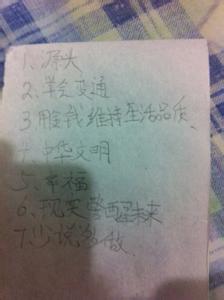 1、源头
2、学会变通
3、用金钱维持生活品质、
4、中华文明
5、幸福
6、现实警醒未来
7、少说多做